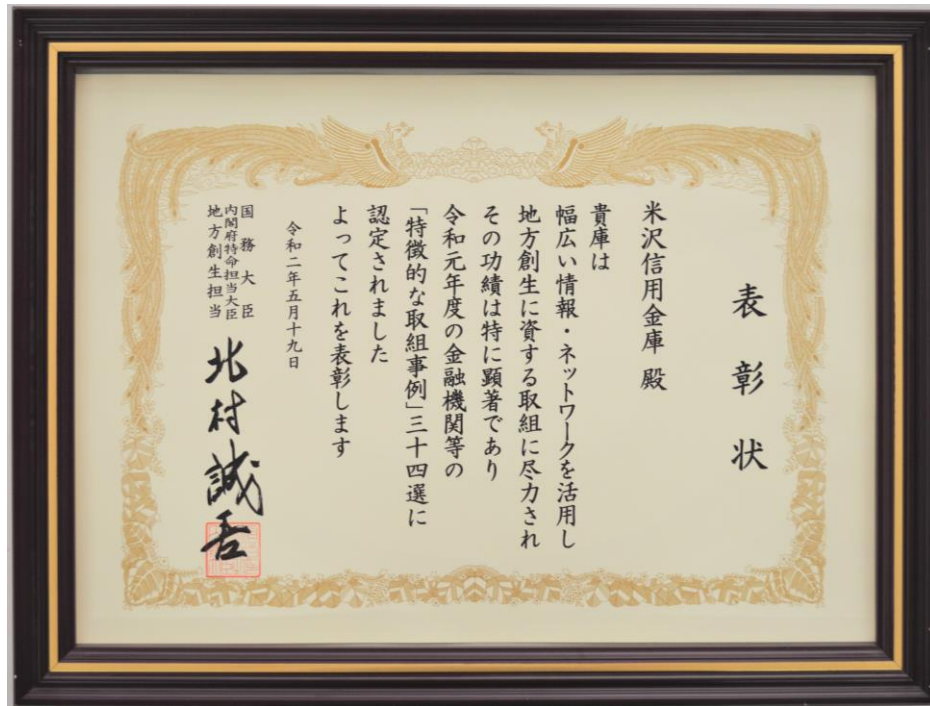 表彰状
米沢信用金庫 殿
貴庫は
幅広い情報・ネットワークを活用し
地方創生に資する取組に尽力され
その功績は特に顕著であり
令和元年度の金融機関等の
「特徴的な取組事例」三十四選に
認定されました
よってこれを表彰します
令和二年五月十九日
国務大臣
内閣府特命担当大臣
地方創生担当
北村誠吾